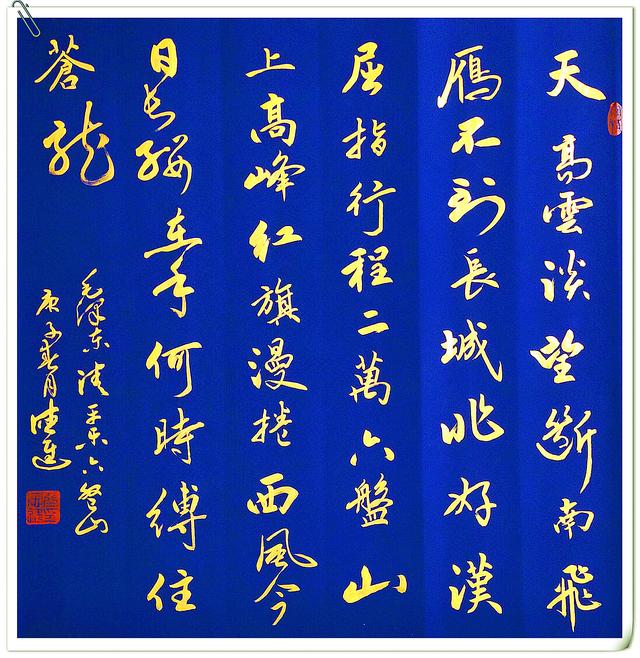 天高雲淡望斷南飛
鴈不到長城非好漢
屈指行程二萬六盤山
上高峰紅旗漫捲西風今
日長纓在手何時縛住
蒼龍
毛澤东清平乐六盤山
庚子春月